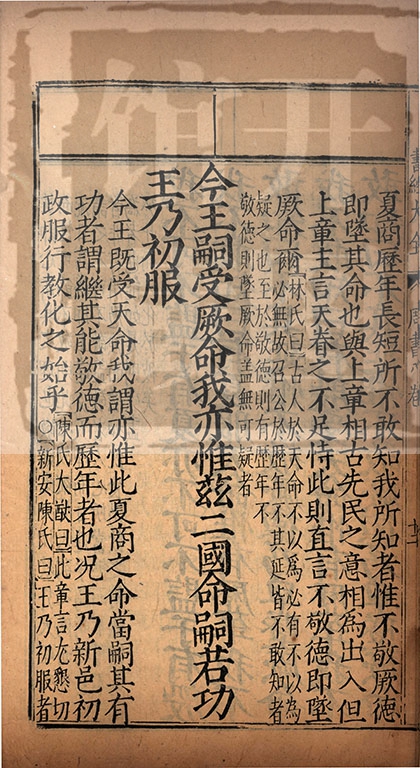 夏商歷年長短所不敢知我所知者惟不敬厥德
即墜其命也與上章相古先民之意相爲出入但
上章主言天眷之不足恃此則直言不敬德即墜
厥命爾林氏曰古人於天命不以爲必有不以爲
必無故召公於歷年不其延皆不敢知者
疑之也至於敬德則有歷年不
敬德則墜厥命盖無可疑者
今王嗣受厥命我亦惟茲二國命嗣若功
王乃初服
今王既受天命我謂亦惟此夏商之命當嗣其有
功者謂繼其能敬德而歷年者也况王乃新邑初
政服行教化之始乎陳氏大猷曰此章言尤懇切
○新安陳氏曰王乃初服者